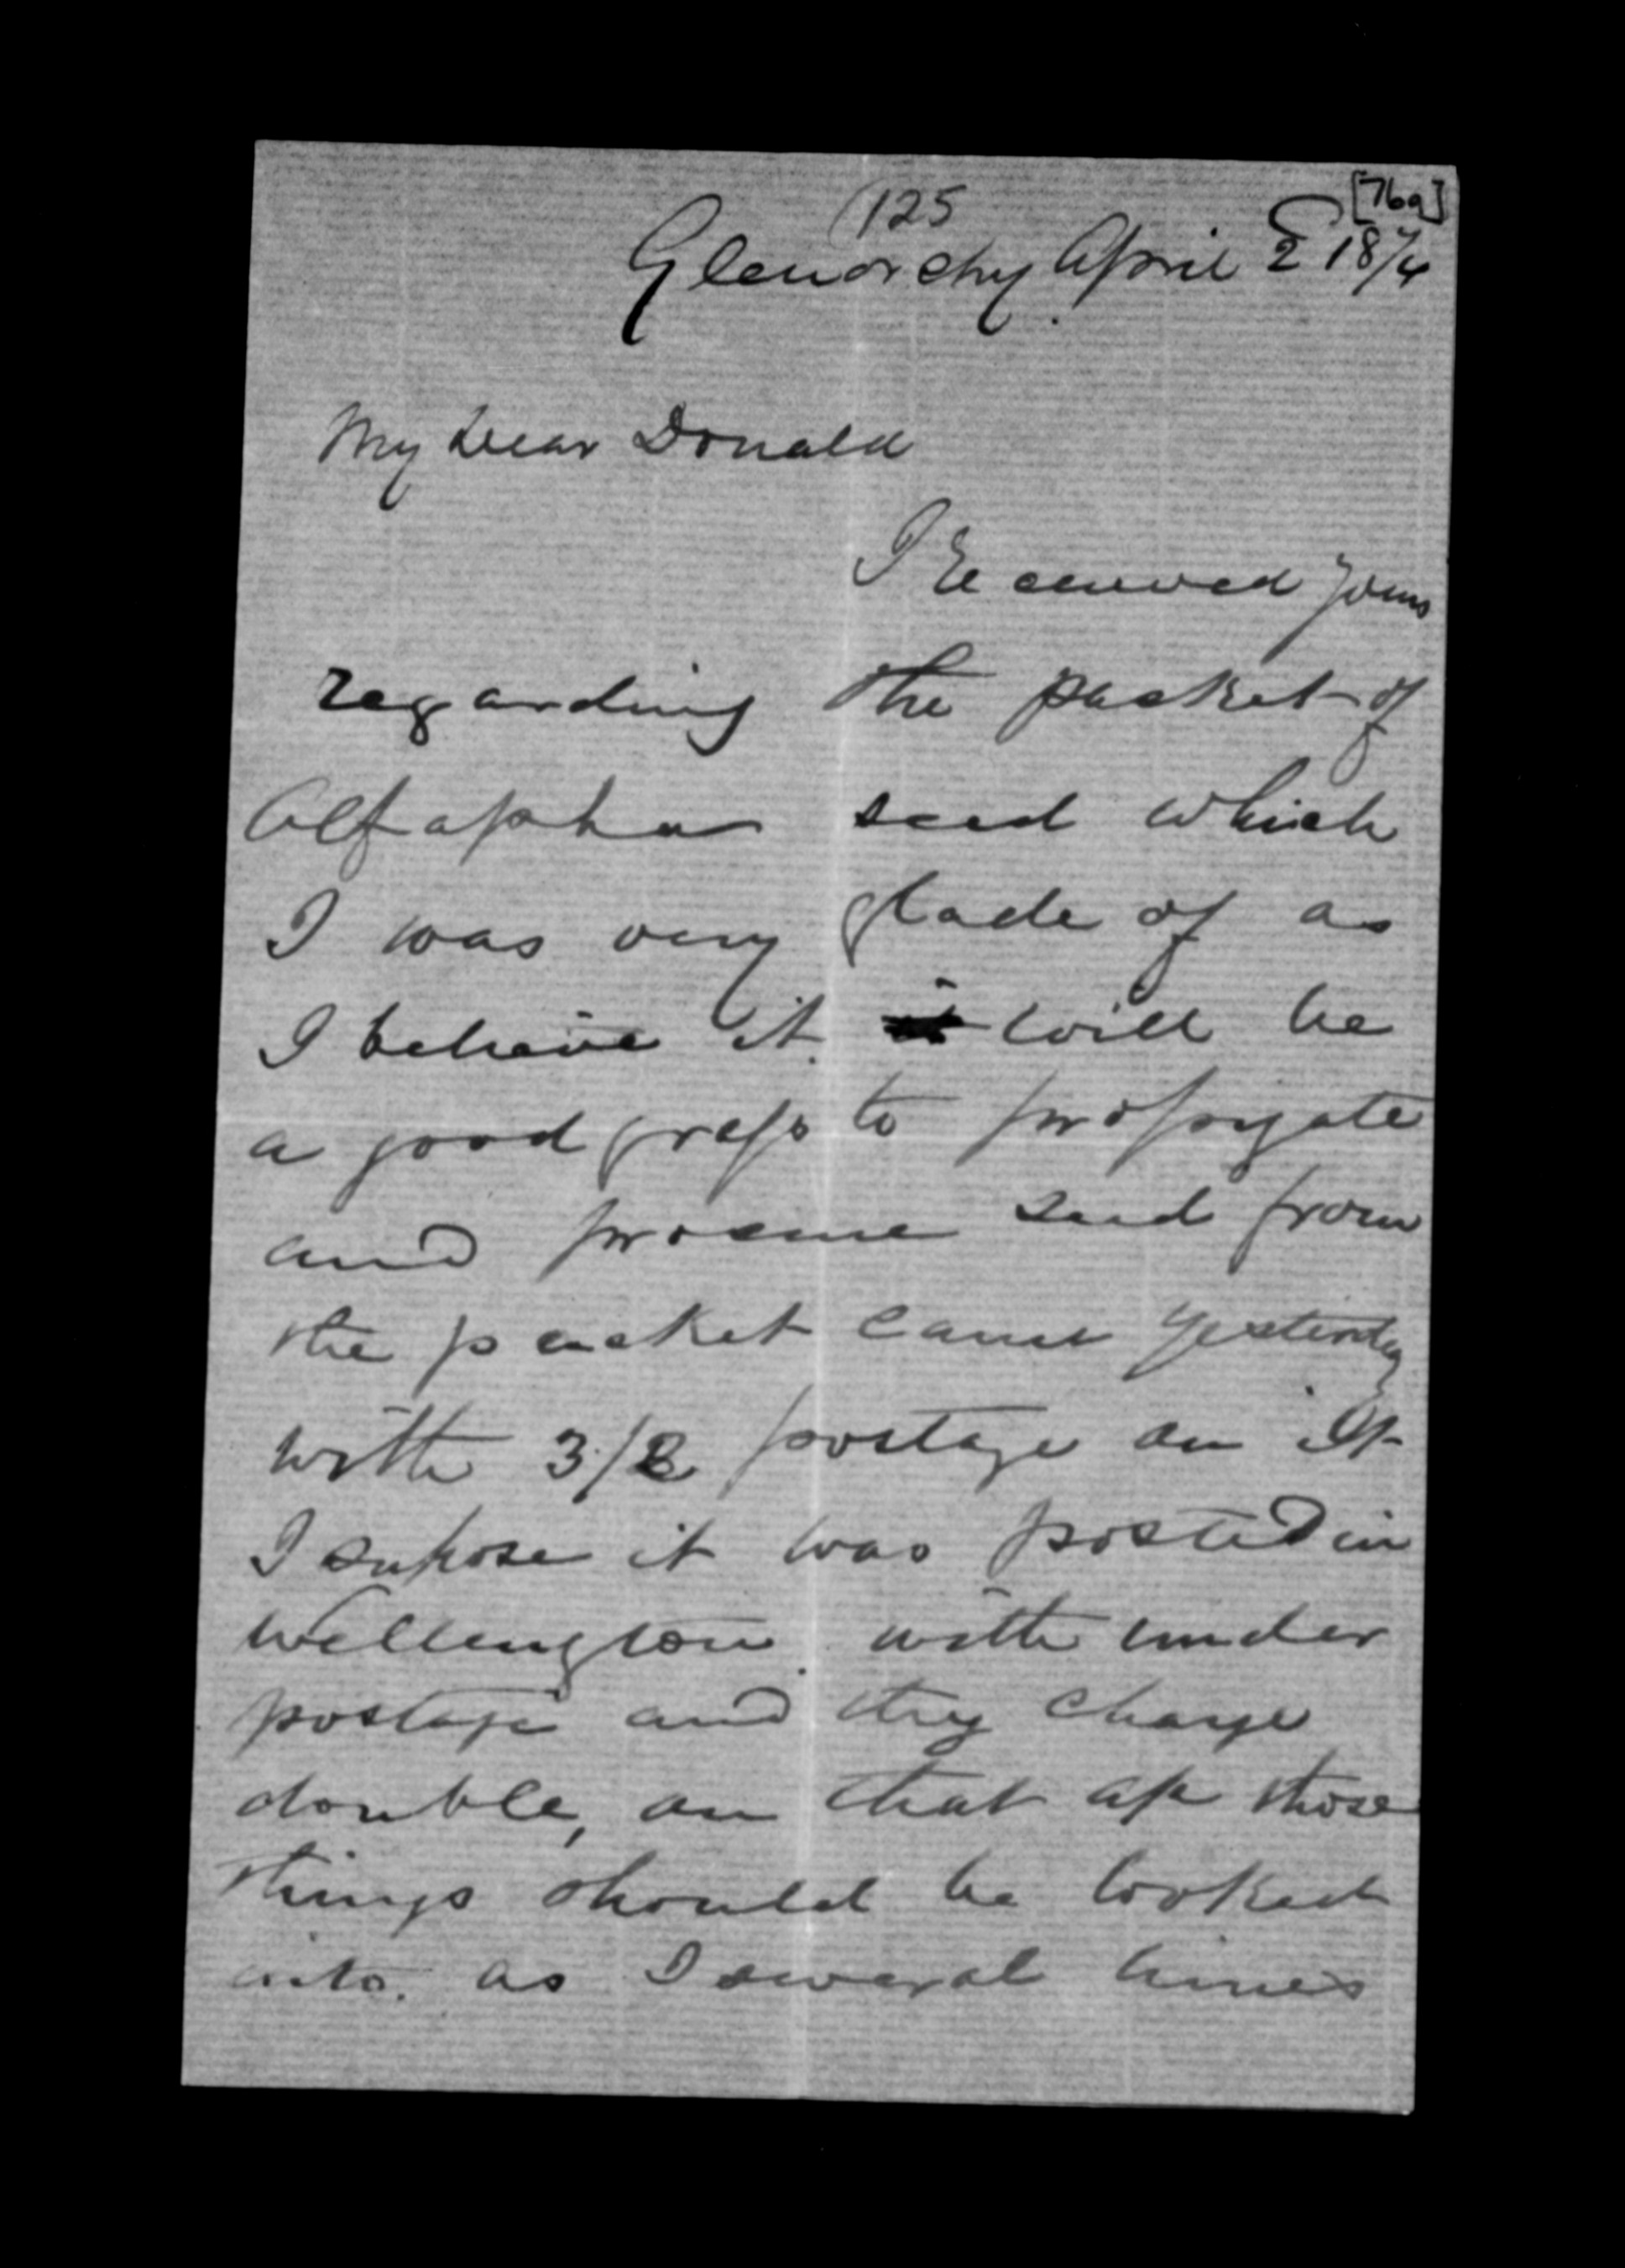 [76a]
(125
Glenorchy April 2d 18/74
My Dear Donald
I Received yours
regarding the packet of
Alfapha seed which
I was very glade of as
I beheive it will be
a good grass to propigate
and procure seed from
the packet came yesterday
with 3/8 postage on It
I supose it was posted in
Wellington. with under
postage and they charge
double, on that up those
things should be looked
into. as I several times